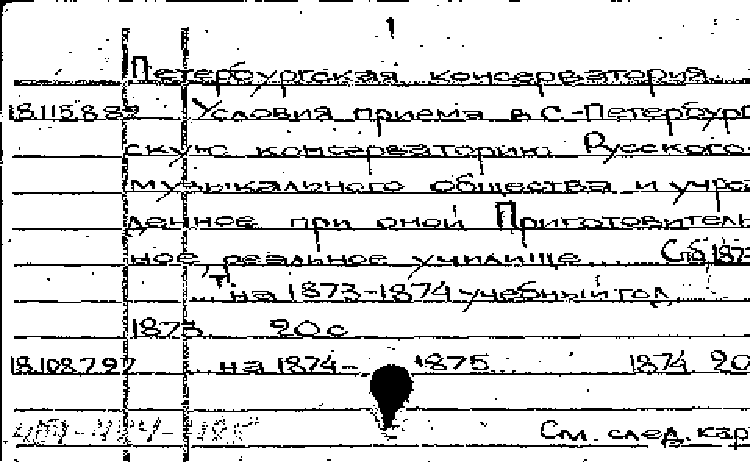 1
Петербургская консерватория.
18.115.8.89 Условия приема в С.-Петербург
скую консерваторию Русского
музыкального общества и учреж
денное при оной Приготовитель
ное реальное училище... Спб 1873
... на 1873-1874 учебный год
1873. 20 с
18.108.7.97 ... на 1874- 1875... 1874. 20
См. след. кар